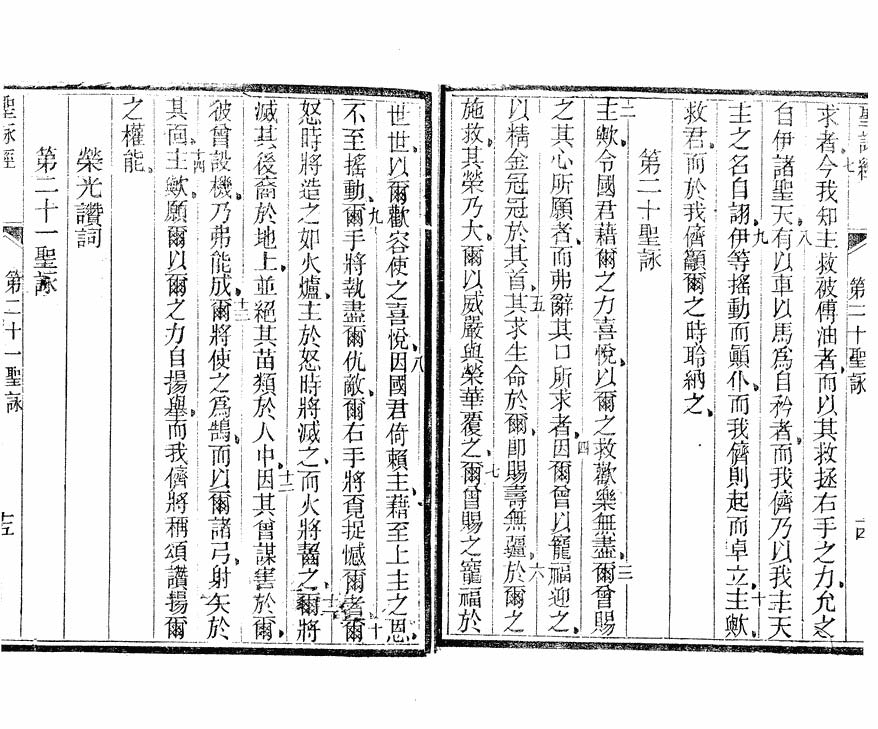 聖詠經 第二十聖詠 十四
求者、七今我知主救被傅油者、而以其救拯右手之力允之、
自伊諸聖天、八有以車以馬爲自矜者、而我儕乃以我主天
主之名自詡、九伊等搖動而顚仆、而我儕則起而卓立、十主歟、
救君、而於我儕籲爾之時聆納之、
第二十聖詠
二主歟、令國君藉爾之力喜悅、以爾之救歡樂無盡、三爾曾賜
之其心所願者、而弗辭其口所求者、四因爾曾以寵福迎之、
以精金冠冠於其首、五其求生命於爾、卽賜壽無疆、六於爾之
施救其榮乃大、爾以威嚴與榮華覆之、七爾曾賜之寵福於
世世、以爾歡容使之喜悅、八因國君倚賴主、藉至上主之恩、
不至搖動、九爾手將執盡爾仇敵、爾右手將覓捉憾爾者、十爾
怒時將造之如火爐、主於怒時將滅之、而火將齧之、十一爾將
滅其後裔於地上、並絕其苗類於人中、十二因其曾謀害於爾、
彼曾設機、乃弗能成、十三爾將使之爲鵠、而以爾諸弓、射矢於
其面、十四主歟、願爾以爾之力自揚舉、而我儕將稱頌讚揚爾
之權能、
榮光讚詞
第二十一聖詠
聖詠經 第二十一聖詠 十五